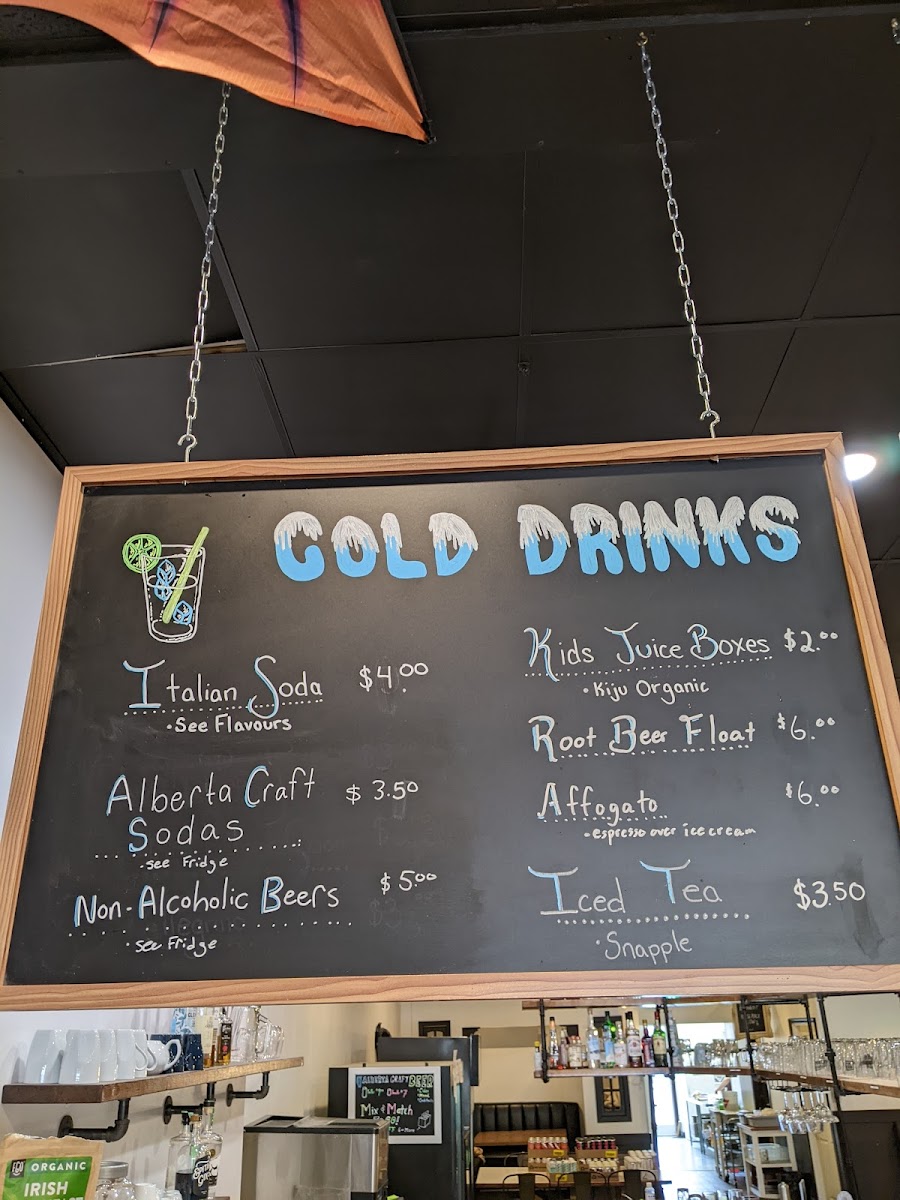 COLD DRINKS
Italian Soda $4.00
• See Flavours
Alberta Craft $3.50
Sodas
- see Fridge
Non-Alcoholic Beers $5.00
• see Fridge
Kids Juice Boxes $2.00
• Kiju Organic
Root Beer Float $6.00
Affogato $6.00
- espresso over ice cream
Iced Tea $3.50
• Snapple
ALBERTA CRAFT BEER
Mix & Match
ORGANIC
IRISH